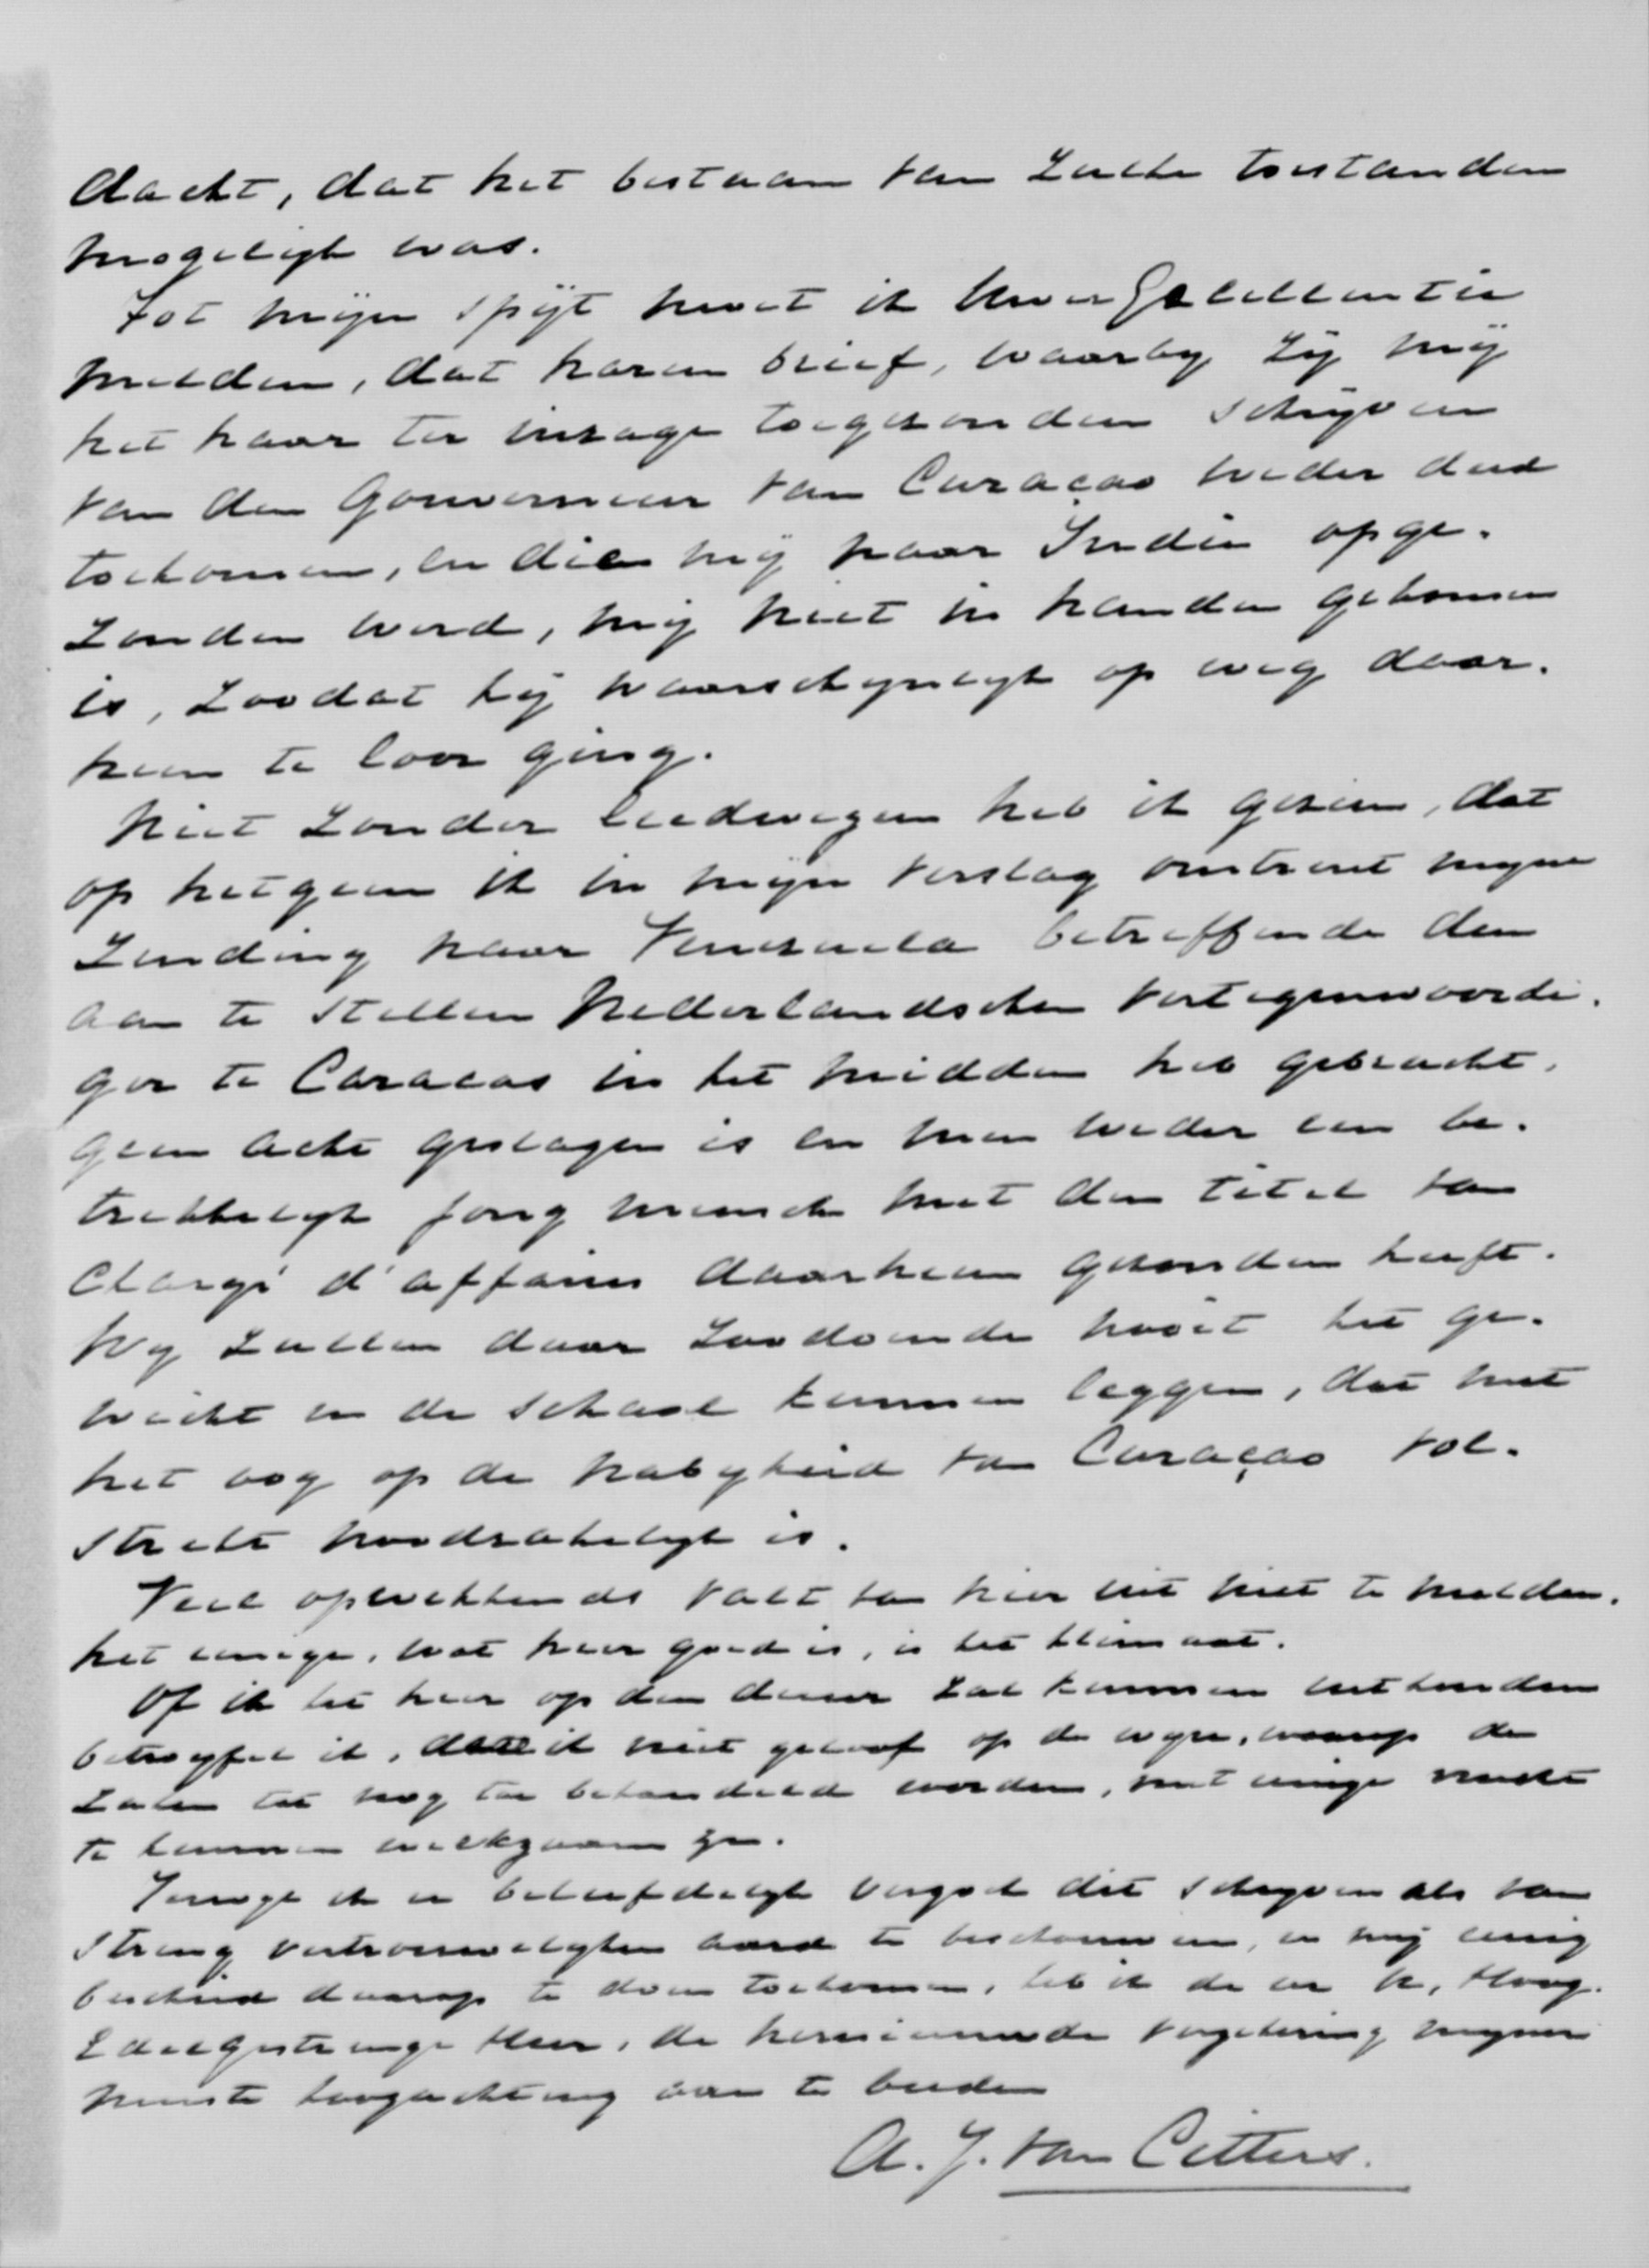 dacht, dat het bestaan van zulke toestanden
mogelijk was.
Tot mijn spijt moet ik Uwer Excellentie
melden, dat haren brief, waarbij zij mij
het haar ter inzage toegezonden schrijven
van den Gouverneur van Curaçao weder deed
toekomen, en die mij naar Indië opge-
zonden werd, mij niet in handen gekomen
is, zoodat hij waarschijnlijk op weg daar-
heen te loor ging.
Niet zonder leedwezen heb ik gezien, dat
op hetgeen ik in mijn verslag omtrent mijne
zending naar Venezuela betreffende den
aan te stellen Nederlandschen vertegenwoordi-
ger te Caracas in het midden heb gebracht,
geen acht geslagen is en men weder een be-
trekkelijk jong mensch met den titel van
Chargé d'affaires daarheen gezonden heeft.
Wij zullen daar zoodoende nooit het ge-
wicht in de schaal kunnen leggen, dat met
het oog op de nabijheid van Curaçao vol-
strekt noodzakelijk is.
Veel opwekkends valt van hier uit niet te melden.
Het eenige, wat hier goed is, is het klimaat.
Of ik het hier op den duur zal kunnen uithouden
betwijfel ik, daar ik niet geloof op de wijze, waarop de
zaken tot nog toe behandeld worden, met eenige vrucht
te kunnen werkzaam zijn.
Terwijl ik U beleefdelijk verzoek dit schrijven als van
streng vertrouwelijken aard te beschouwen, en mij eenig
bescheid daarop te doen toekomen, heb ik de eer U, Hoog-
Edelgestrenge Heer, de hernieuwde verzekering mijner
meeste hoogachting aan te bieden
A. J. van Citters.